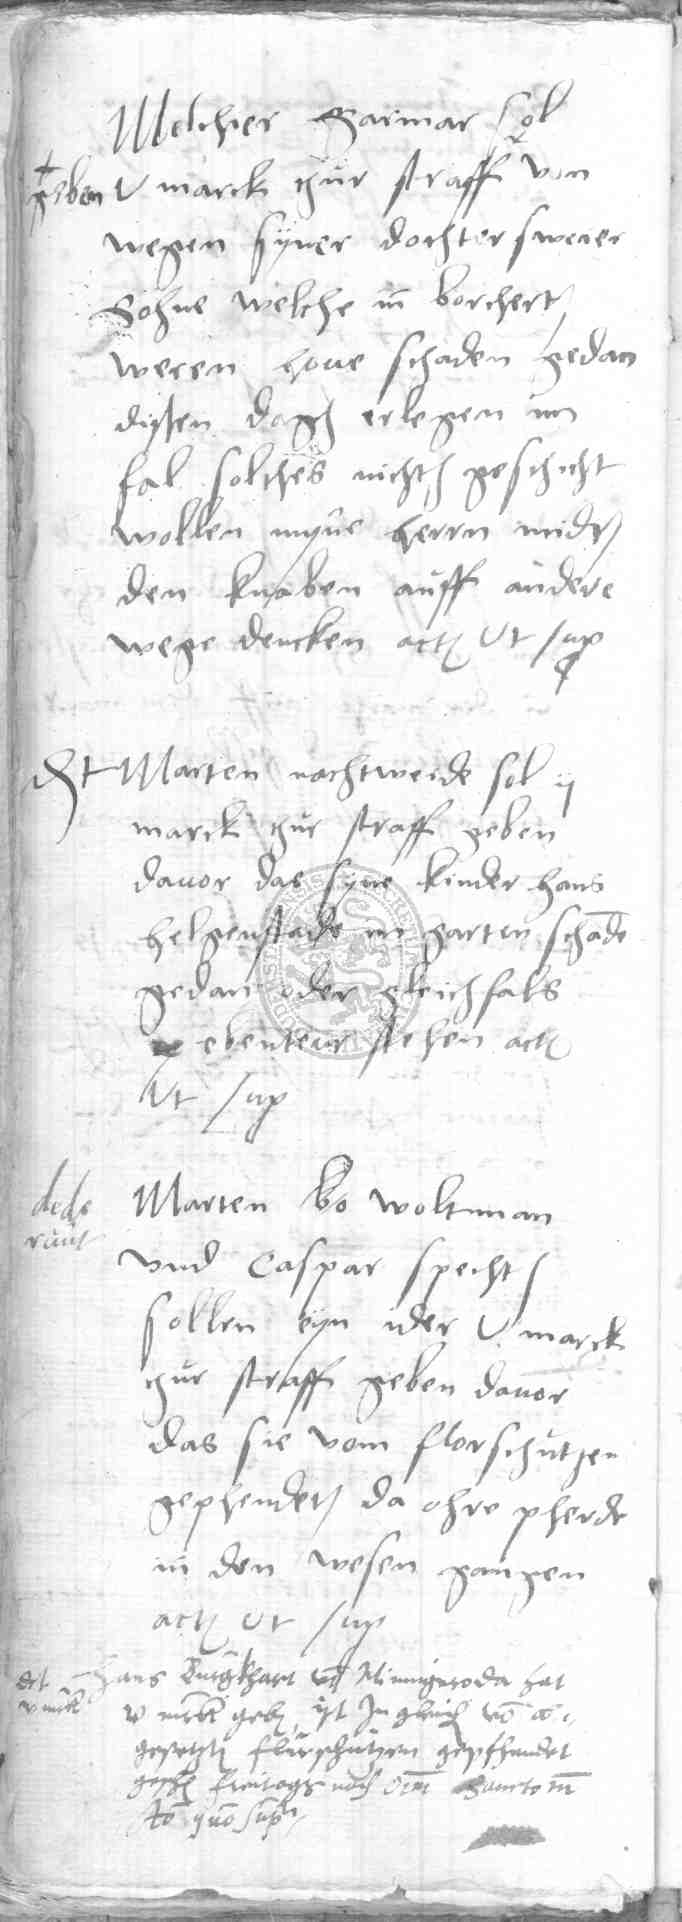 Melcher Garmar sol
geben V marck zur straff von
wegen syner dochter sweier
Sohne welche in borchert
weren hove schaden gedan
dissen dagh erlegen im
fal solches nicht geschicht
wollen myne herrn midt
den knaben auff andere
wege dencken act ut sup
dt Marten nachtweide sol ij
marck zur straff geben
davor das syne kinder hans
helgenstade im garten schade
gedan oder gleichfals
ebenteur stehen act
Ut sup
dede
runt
Marten bo woltman
vnd Caspar specht
sollen eyn ider V marck
zur straff geben davor
das sie vom florschutzen
gephendet da ohre pherde
in den wesen gangen
act ut sup
dt
v mrk
Hans Burgkhart von Minnigeroda hat
v marck geb ist In gleich von
gesetzt flurschutzen gepfhandet
gesch freitags nach Om Sanctorum
Ao quo supra